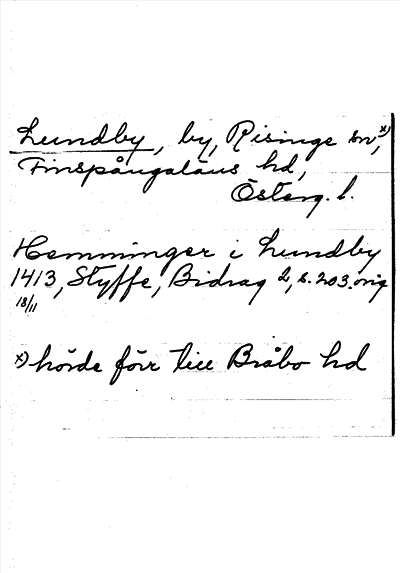 Lundby, by, Risinge sn, x)
Finspångaläns hd,
Österg. l.
Hemminger i Lundby
1413, Styffe, Bidrag 2, s. 203. orig
18/11
x) hörde förr till Bråbo hd